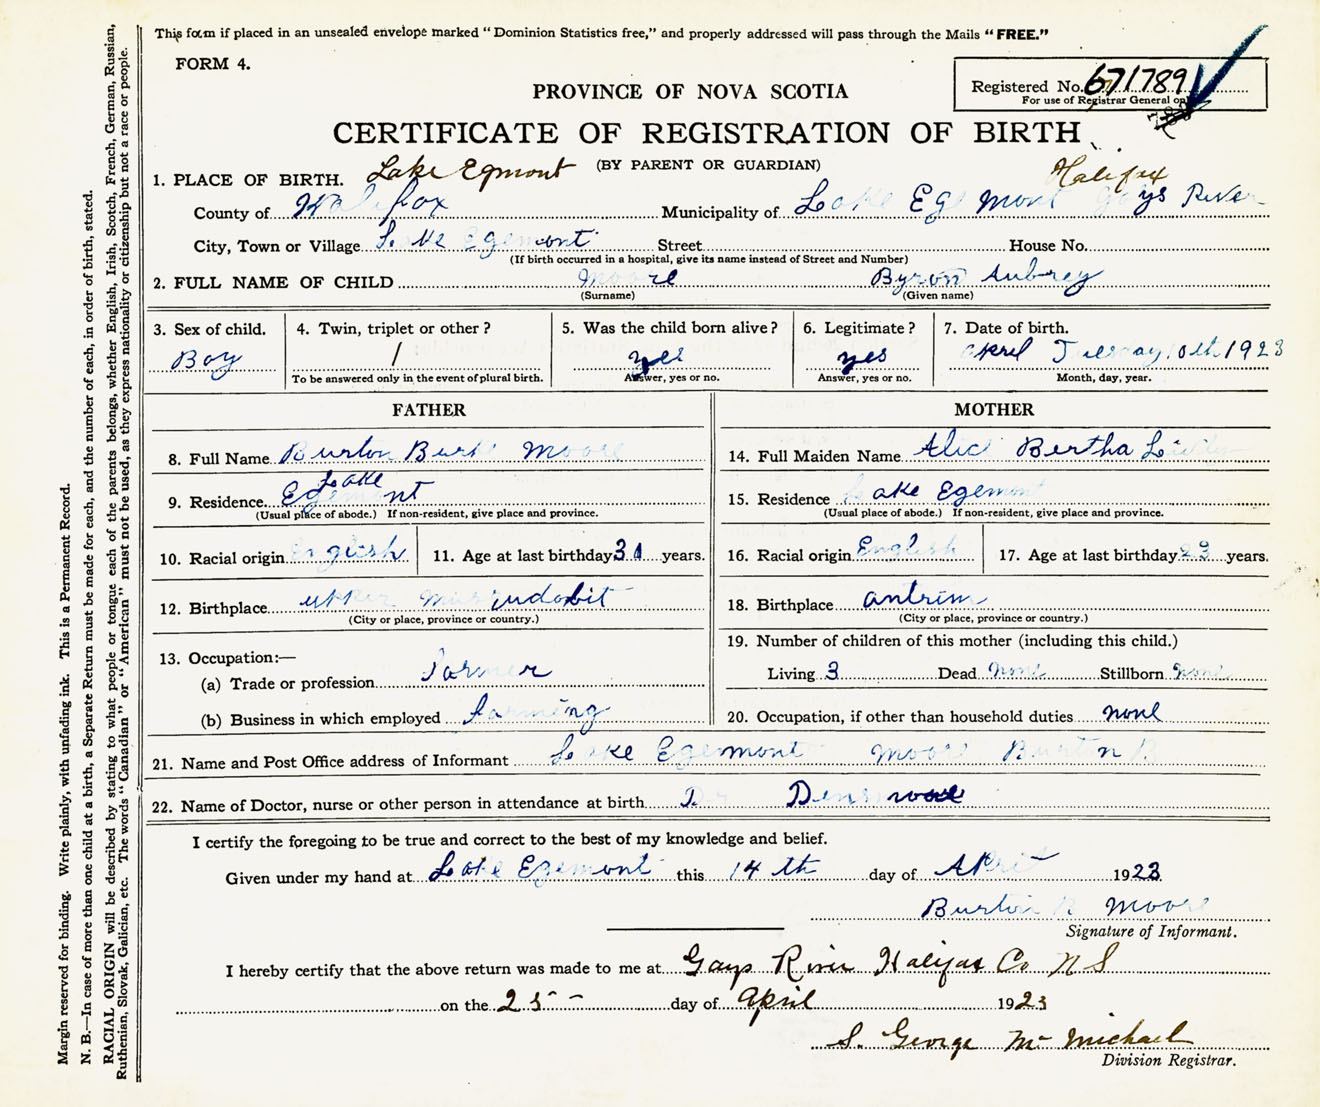 This form if placed in an unsealed envelope marked "Dominion Statistics free," and properly addressed will pass through the Mails "FREE."
FORM 4.
Registered No. 671789
For use of Registrar General only
PROVINCE OF NOVA SCOTIA
CERTIFICATE OF REGISTRATION OF BIRTH
(BY PARENT OR GUARDIAN)
Lake Egmont Halifax
1. PLACE OF BIRTH.
County of Halifax Municipality of Lake Egemont Gays River
City, Town or Village Lake Egemont Street House No.
(If birth occurred in a hospital, give its name instead of Street and Number)
2. FULL NAME OF CHILD Moore Byron Aubrey
(Surname) (Given name)
3. Sex of child. 4. Twin, triplet or other? 5. Was the child born alive? 6. Legitimate? 7. Date of birth.
Boy / yes yes April Tuesday 10th 1923
To be answered only in the event of plural birth. Answer, yes or no. Answer, yes or no. Month, day, year.
FATHER
8. Full Name Burton Burk Moore
9. Residence Lake Egemont
(Usual place of abode.) If non-resident, give place and province.
10. Racial origin English 11. Age at last birthday 31 years.
12. Birthplace upper Musquodobit
(City or place, province or country.)
13. Occupation:—
(a) Trade or profession Farmer
(b) Business in which employed farming
MOTHER
14. Full Maiden Name Alic Bertha
15. Residence Lake Egemont
(Usual place of abode.) If non-resident, give place and province.
16. Racial origin English 17. Age at last birthday 23 years.
18. Birthplace antrim
(City or place, province or country.)
19. Number of children of this mother (including this child.)
Living 3 Dead none Stillborn none
20. Occupation, if other than household duties none
21. Name and Post Office address of Informant Lake Egemont Moore Burton B
22. Name of Doctor, nurse or other person in attendance at birth Dr
I certify the foregoing to be true and correct to the best of my knowledge and belief.
Given under my hand at Lake Egemont this 14 th day of April 1923
Burton B Moore
Signature of Informant.
I hereby certify that the above return was made to me at Gays River Halifax Co N S
on the 25 - day of April 1923
S. George McMichael
Division Registrar.
Margin reserved for binding. Write plainly, with unfading ink. This is a Permanent Record.
N. B.—In case of more than one child at a birth, a Separate Return must be made for each, and the number of each, in order of birth, stated.
RACIAL ORIGIN will be described by stating to what people or tongue each of the parents belongs, whether English, Irish, Scotch, French, German, Russian,
Ruthenian, Slovak, Galician, etc. The words "Canadian" or "American" must not be used, as they express nationality or citizenship but not a race or people.